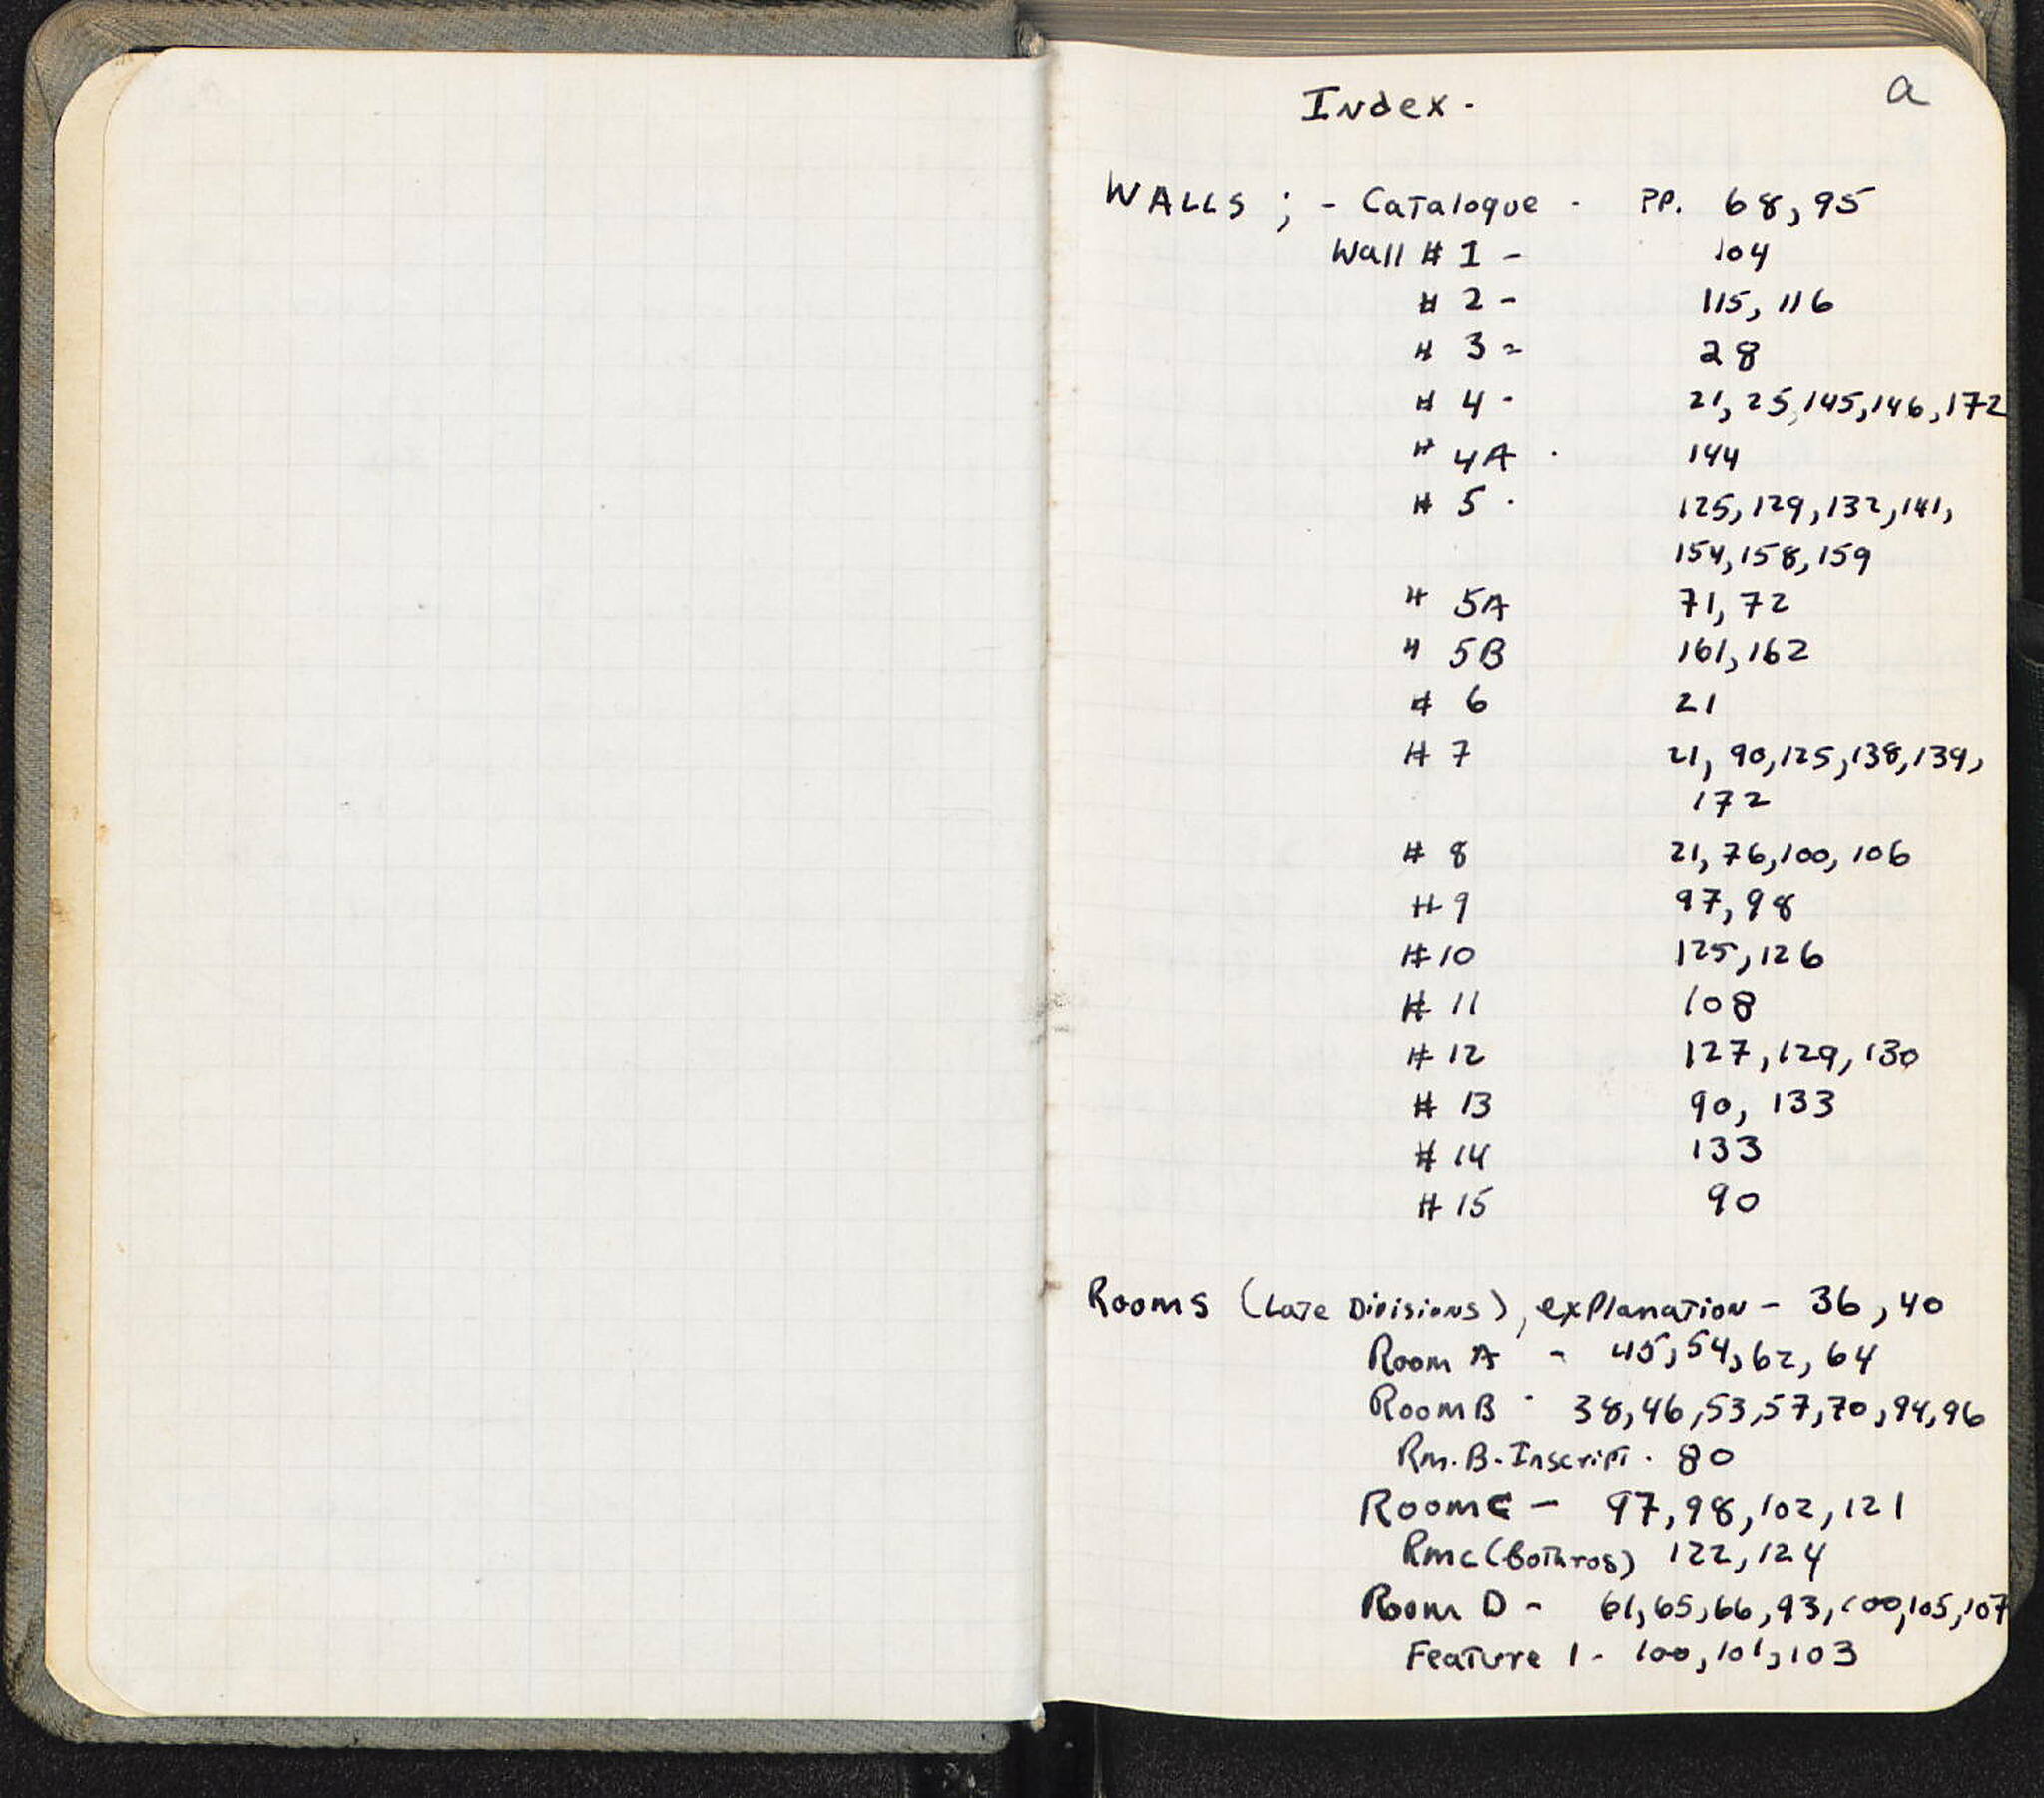 Index - a
WALLS ; - Catalogue - PP. 68, 95
Wall # 1 - 104
# 2 - 115, 116
# 3 - 28
# 4 - 21, 25, 145, 146, 172
# 4A - 144
# 5 - 125, 129, 132, 141,
154, 158, 159
# 5A 71, 72
# 5B 161, 162
# 6 21
# 7 21, 90, 125, 138, 139,
172
# 8 21, 76, 100, 106
# 9 97, 98
# 10 125, 126
# 11 108
# 12 127, 129, 130
# 13 90, 133
# 14 133
# 15 90
Rooms (Late Divisions), explanation - 36, 40
Room A - 45, 54, 62, 64
Room B - 38, 46, 53, 57, 70, 94, 96
Rm. B - Inscript. 80
Room C - 97, 98, 102, 121
Rm C (Bothros) 122, 124
Room D - 61, 65, 66, 93, 100, 105, 107
Feature 1 - 100, 101, 103